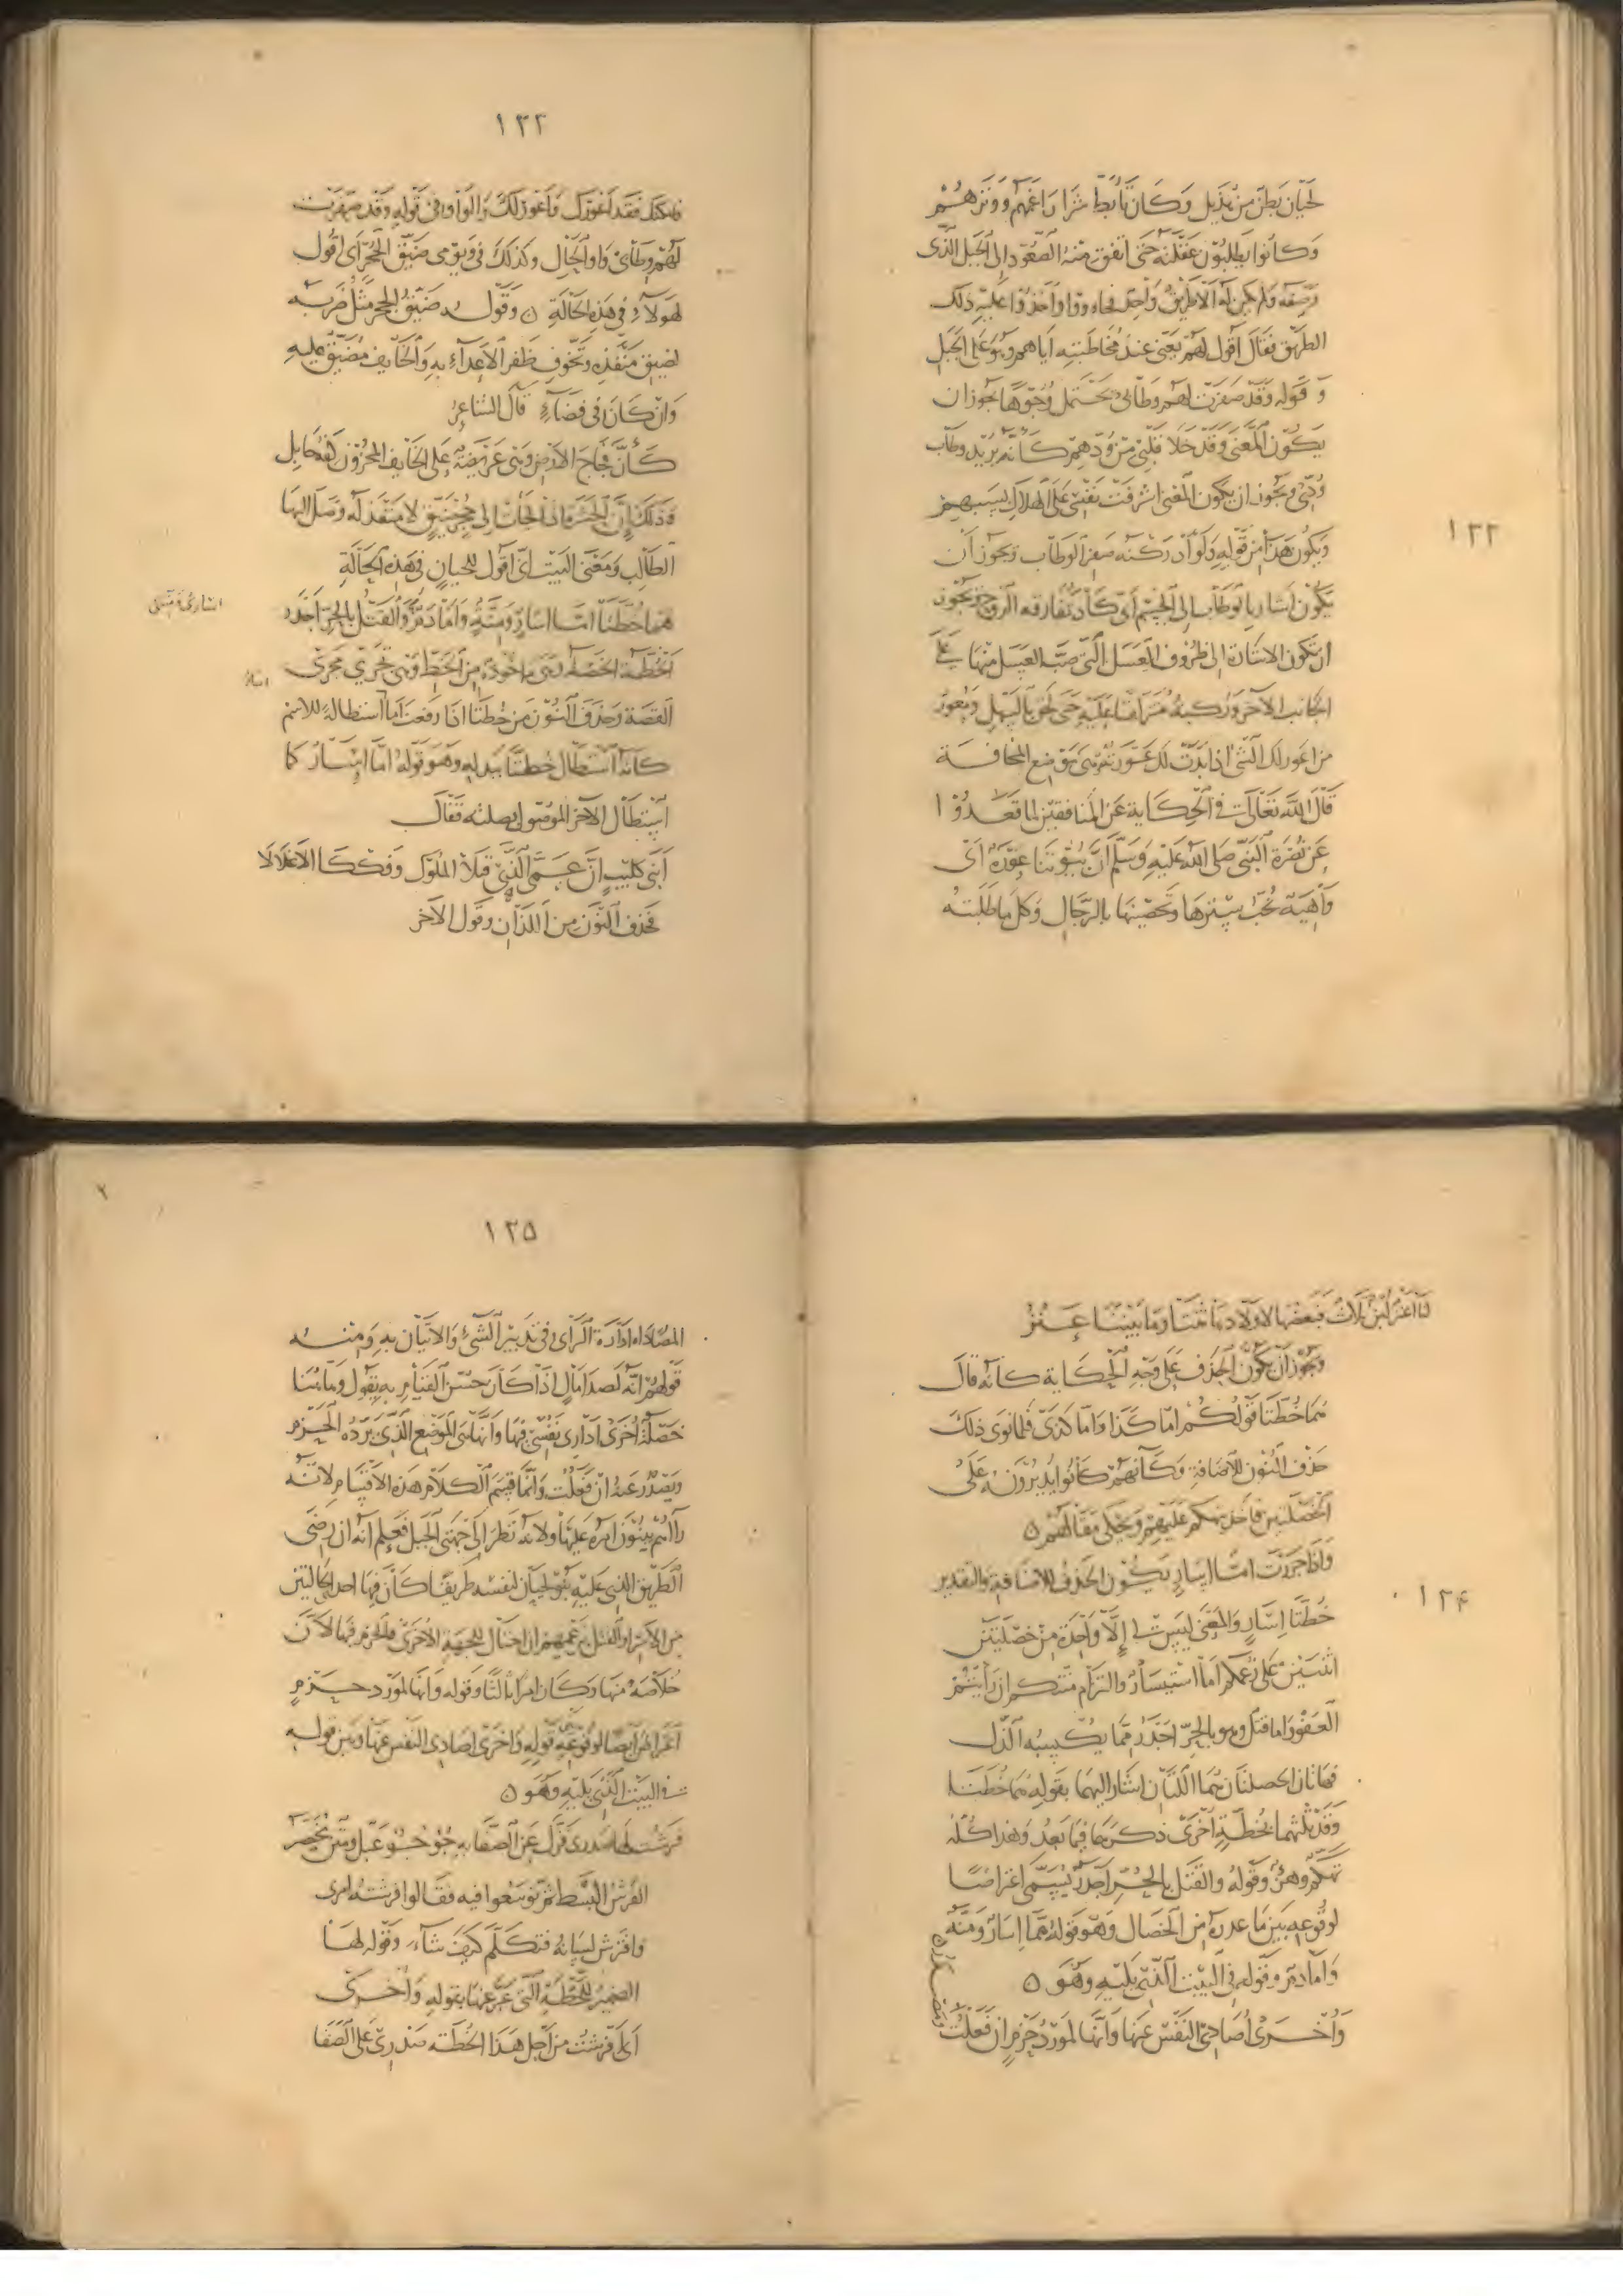 لحيان بطن من هذيل وكان تأبط شرا يراغمهم ووترهم
وكانوا يطلبون غفلته حتى اتفق منه الصعود الى الجبل الذى
وصفه ولم يكن له الا طريق واحد فجاءوا واخذوا عليه ذلك
الطريق فقال اقول لهم يعنى عند مخاطبته اياهم وهو على الجبل
وقوله وقد صفرت لهم وطابى يحتمل وجوها يجوز ان
يكون المعنى وقد خلا قلبى من ودهم كانه يريد وطاب
ودى ويجوز ان يكون المعنى اشرفت نفسى على الهلاك بسببهم
ويكون هذا من قوله ولو ادركنه صفر الوطاب ويجوز ان
يكون اشار بالوطاب الى الجسم اى كاد تفارقه الروح ويجوز
ان تكون الاشارة الى ظروف العسل التى صب العسل منها على
الجانب الآخر وركبه متزلقا عليه حتى لحق بالسهل ومعور
من اعور لك الشئ اذا بدت لك عورته وهى موضع المخافة
قال الله تعالى فى الحكاية عن المنافقين لما قعدوا
عن نصرة النبى صلى الله عليه وسلم ان بيوتنا عورة اى
واهية يجب سترها وتحصينها بالرجال وكل ما طلبته
١٢٢
١٢٣
فامكنك فقد اعورك واعور لك والواو فى قوله وقد صفرت
لهم وطابى واو الحال وكذلك فى ويومى ضيق الجحر اى اقول
لهولاء فى هذه الحالة ٥ وقوله ضيق الجحر مثل ضربه
لضيق منفذه وتخوف ظفر الاعداء به والخايف مضيق عليه
وان كان فى فضاء قال الشاعر
كأن فجاج الارض وهى عريضة على الخايف المحزون كفة حابل
وذلك ان الحشرة اذا الجات الى جحر ضيق لا منفذ له وصل اليها
الطالب ومعنى البيت انى اقول للحيان فى هذه الحالة
هما خطتا اما اسار ومنة واما دم والقتل بالحر اجدر
الخطة الخصلة وهى ماخوذة من الخط وهى تجرى مجرى
القصة وحذف النون من خطتا اذا رفعت اما استطالة للاسم
كانه استطال خطتا ببدله وهو قوله اما اسار كما
استطال الآخر الموصول بصلته فقال
أبنى كليب ان عمى اللذا قتلا الملوك وفككا الاغلالا
فحذف النون من اللذان وقول الآخر
لنا اعنز لبن ثلاث فبعضها لاولادها ثنتا وما بيننا عنز
ويجوز ان يكون الحذف على وجه الحكاية كانه قال
هما خطتا قولكم اما كذا واما كذى فلما نوى ذلك
حذف النون للاضافة وكانهم كانوا يديرونه على
الخصلتين فاخذ يتهكم عليهم ويحكى مقالهم ٥
واذا جررت اما اسار يكون الحذف للاضافة والتقدير
خطتا اسار والمعنى ليس لى الا واحدة من خصلتين
اثنتين على زعمكم اما استيسار والتزام منتكم ان رأيتم
العفو واما قتل وهو بالحر اجدر مما يكسبه الذل
فهاتان الخصلتان هما اللتان اشار اليهما بقوله هما خطتا
وقد ثلثهما بخطة اخرى ذكرها فيما بعد وهذا كله
تهكم وهزؤ وقوله والقتل بالحر اجدر يسمى اعتراضا
لوقوعه بين ما عدده من الخصال وهو قوله اما اسار ومنة
واما دم وقوله فى البيت الذى يليه وهو ٥
واخرى اصادى النفس عنها وانها لمورد حزم ان فعلت
١٢٤
١٢٥
المصاداة ادارة الراى فى تدبير الشئ والاتيان به ومنه
قولهم انه لصدا مال اذا كان حسن القيام به يقول وهاهنا
خصلة اخرى ادارى نفسى فيها وانها هى الموضع الذى يرده الحزم
ويصدر عنه ان فعلت وانما قسم الكلام هذه الاقسام لانه
رآهم يبنون امره عليها ولانه نظر الى جهتى الجبل فعلم انه ان رضى
الطريق الذى عليه بنو لحيان لنفسه طريقا كان فيها احد الحالتين
من الاسر او القتل بزعمهم ان احتال للجهة الاخرى فالحزم فيها لان
خلاصه منها وكان امرا ثالثا وقوله وانها لمورد حزم
اعتراض ايضا لوقوعه بين قوله واخرى اصادى النفس عنها وبين قوله
فى البيت الذى يليه وهو ٥
فرشت لها صدرى فزل عن الصفا به جؤجؤ عبل ومتن مخصر
الفرش البسط ثم توسعوا فيه فقالوا فرشته امرى
وافترش لسانه فتكلم كيف شاء وقوله لها
الضمير للخطة التى عبر عنها بقوله واخرى
اى فرشت من اجل هذا الخطة صدرى على الصفا